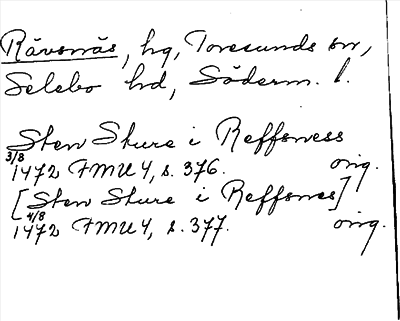 Rävsnäs, hg, Toresunds sn,
Selebo hd, Söderm. l.
Sten Sture i Reffsness
3/8
1472 FMU 4, s. 376. orig.
[Sten Sture i Reffsnes]
4/8
1472 FMU 4, s. 377. orig.